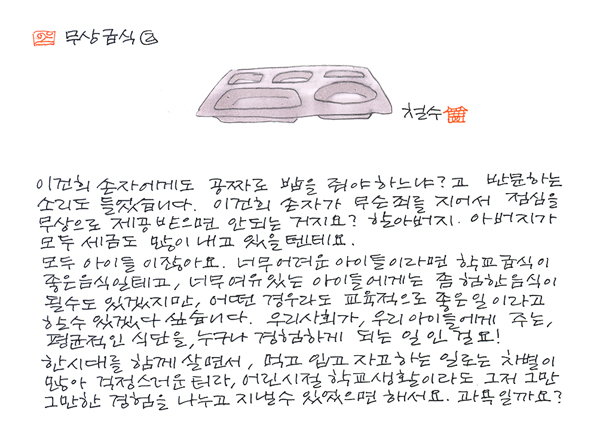 무상급식 ②
철수
이건희 손자에게도 공짜로 밥을 줘야하느냐?고 반문하는
소리도 들었습니다. 이건희 손자가 무슨죄를 지어서 점심을
무상으로 제공받으면 안되는 거지요? 할아버지. 아버지가
모두 세금도 많이 내고 있을텐데요.
모두 아이들 이잖아요. 너무어려운 아이들이라면 학교급식이
좋은음식일테고, 너무여유있는 아이들에게는 좀 험한음식이
될수도 있겠지만, 어떤 경우라도 교육적으로 좋은일 이라고
할수 있겠다 싶습니다. 우리사회가, 우리 아이들에게 주는,
평균적인 식단을, 누구나 경험하게 되는 일 인 걸요!
한시대를 함께 살면서, 먹고 입고 자고하는 일로는 차별이
많아 걱정스러운 터라, 어린시절 학교생활이라도 그저 그만
그만한 경험을 나누고 지낼수 있었으면 해서요. 과욕일까요?